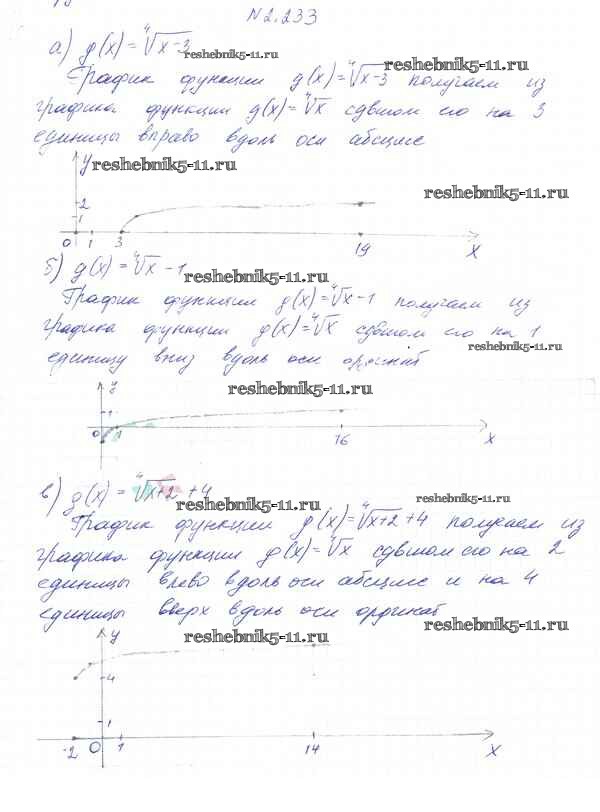 N 2.233
а) g(x) = ∜(x-3) reshebnik5-11.ru
График функции g(x) = ∜(x-3) получаем из reshebnik5-11.ru
графика функции g(x) = ∜x сдвигом его на 3
единицы вправо вдоль оси абсцисс
y reshebnik5-11.ru
reshebnik5-11.ru
2
1
0 1 3 19 x
б) g(x) = ∜x - 1 reshebnik5-11.ru
График функции g(x) = ∜x - 1 получаем из
графика функции g(x) = ∜x сдвигом его на 1
reshebnik5-11.ru
единицу вниз вдоль оси ординат
y reshebnik5-11.ru
1
0 1 16 x
в) g(x) = ∜(x+2) + 4 reshebnik5-11.ru reshebnik5-11.ru
График функции g(x) = ∜(x+2) + 4 получаем из
графика функции g(x) = ∜x сдвигом его на 2
единицы влево вдоль оси абсцисс и на 4
единицы вверх вдоль оси ординат reshebnik5-11.ru
y reshebnik5-11.ru
4
1
-2 0 1 14 x